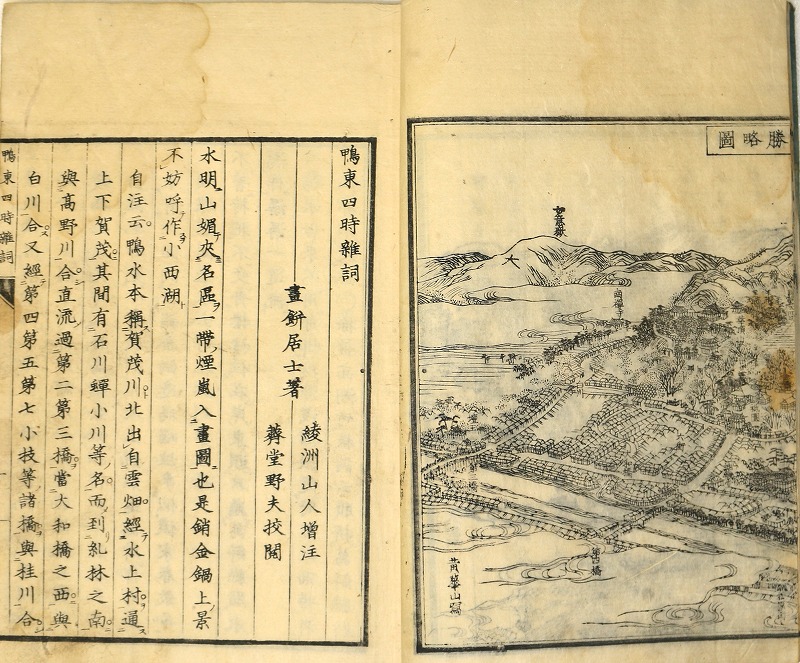 勝略圖
如意嶽
大
南禪寺
第四橋
黄華山寫
鴨東四時雜詞
畫餅居士著
綾洲山人增注
薺堂野夫挍閲
水明山媚夾名區一帶煙嵐入畫圖也是銷金鍋上景
不妨呼作小西湖
自注云鴨水本稱賀茂川北出自雲畑經水上村通
上下賀茂其間有石川蟬小川等名而到糺林之南
與高野川合直流過第二第三橋當大和橋之西與
白川合又經第四第五第七小枝等諸橋與桂川合
鴨東四時雜詞